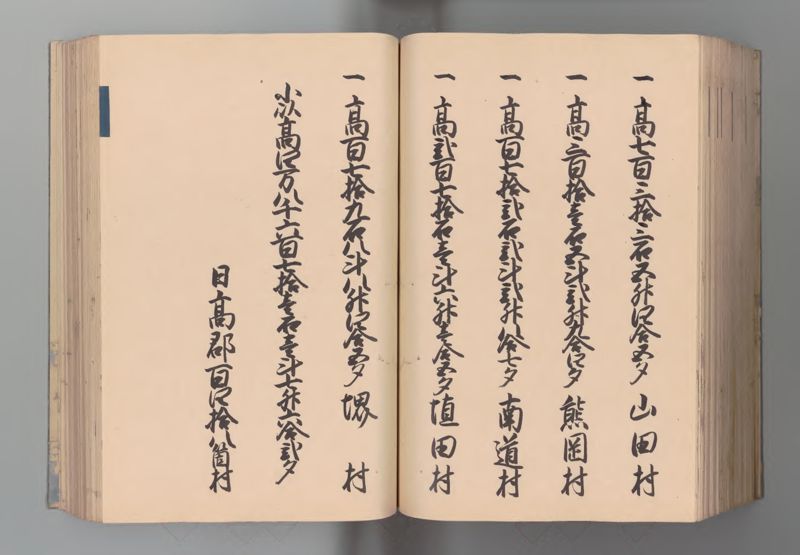 一高七百三拾三石五升四合五夕 山田村
一高三百拾壱石五斗弐升九合四夕 熊岡村
一高百七拾弐石弐斗弐升八合七夕 南道村
一高弐百七拾石壱斗六升壱合五夕 埴田村
一高百七拾九石八斗八升四合五夕 堺村
小以高四万八千六百七拾壱石壱斗七升六合弐夕
日高郡百四拾八箇村